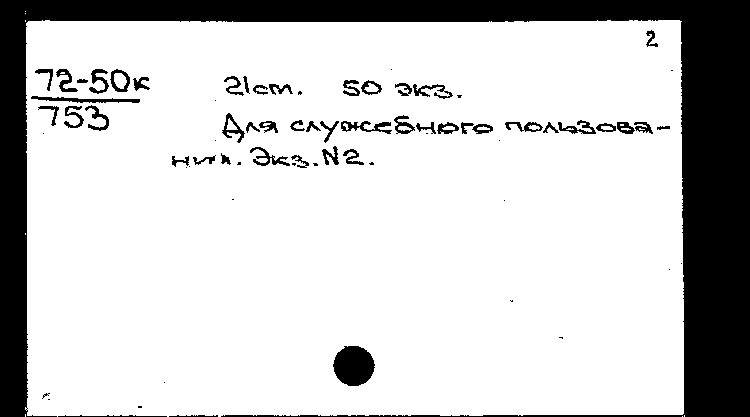 2
72-50к
753
21 ст. 50 экз.
Для служебного пользова-
ния. Экз. N2.